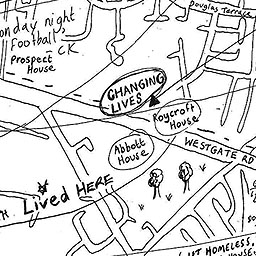 onday night
Football,
CK.
Prospect
House
Douglas Terrace
CHANGING
LIVES
Roycroft
House
Abbott
House
WESTGATE RD
Lived HERE
HOMELESS,